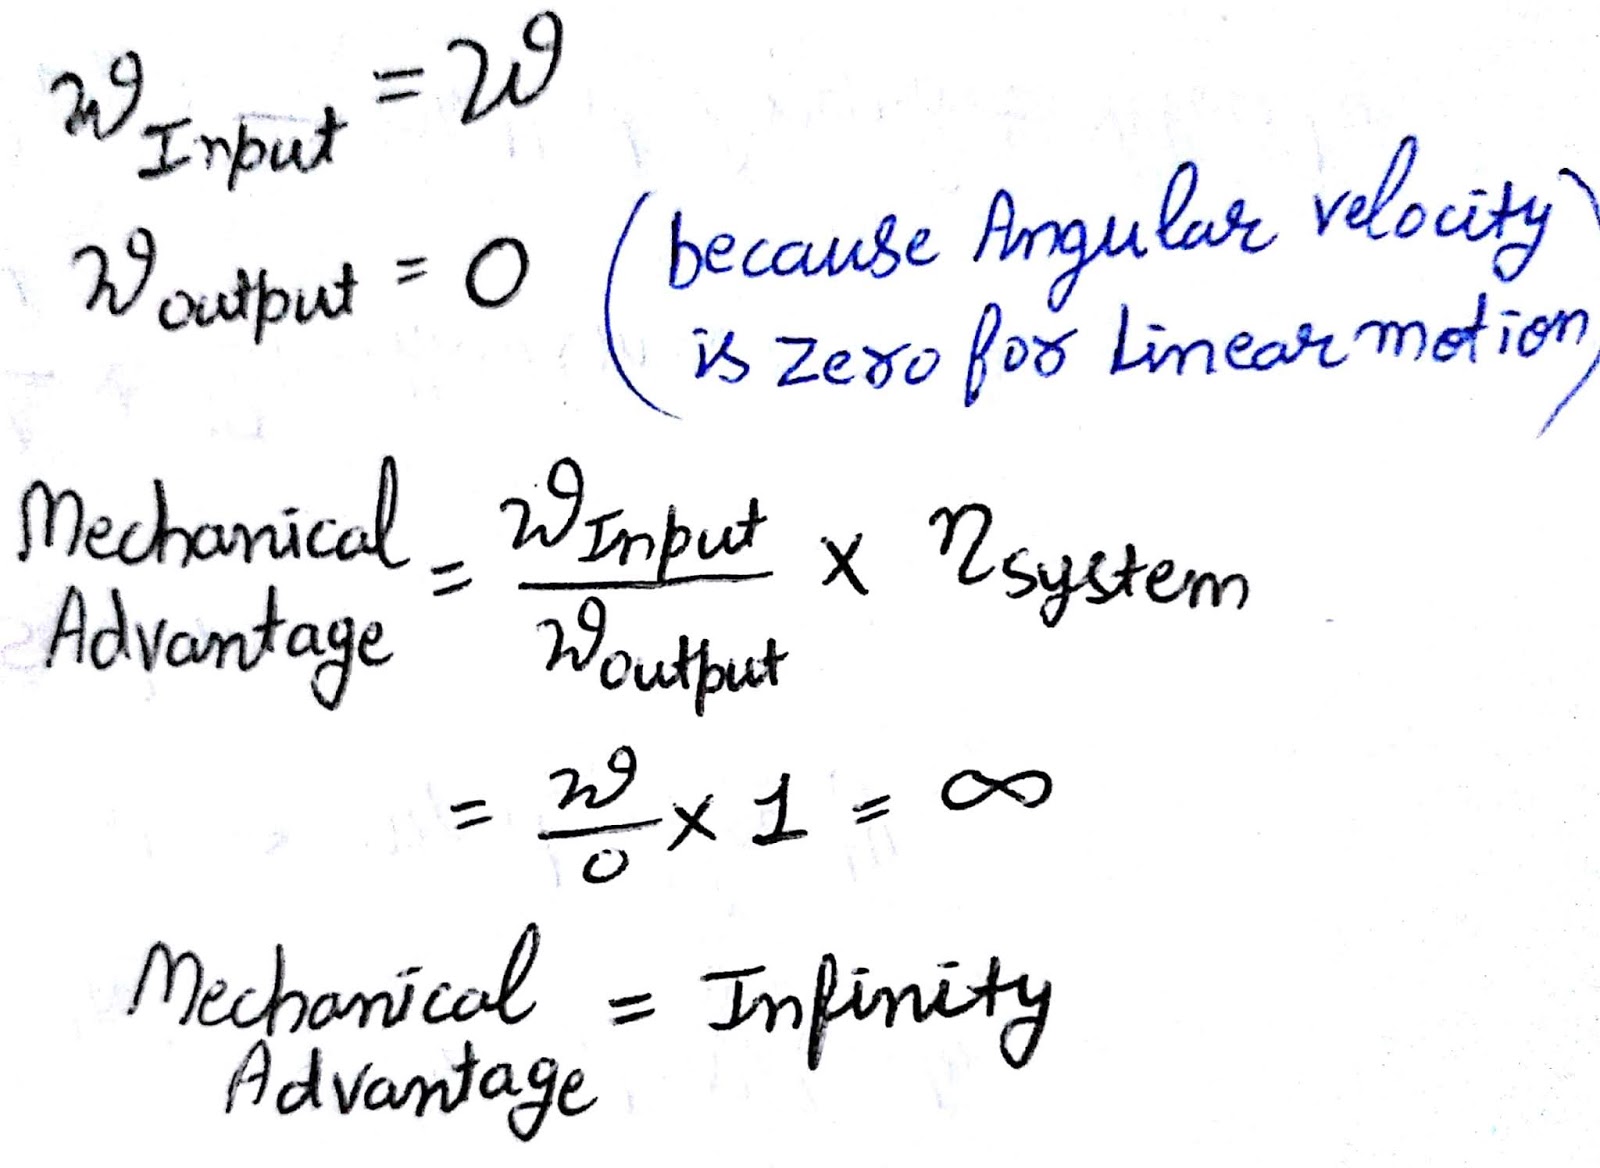 ω Input = ω
ω output = 0 (because Angular velocity
is zero for Linear motion)
Mechanical Advantage = ω Input / ω output × η system
= ω/0 × 1 = ∞
Mechanical Advantage = Infinity